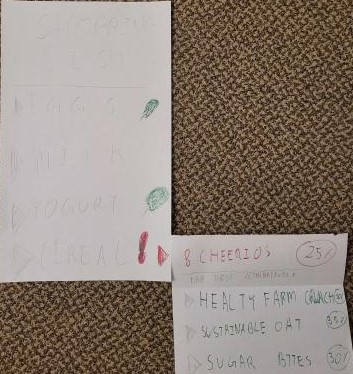 SHOPPING
LIST
EGGS
MILK
YOGURT
CEREAL !
8 CHEERIOS 25%
HEALTY FARM CRUNCH
SUSTAINABLE OAT 35%
SUGAR BITES 30%